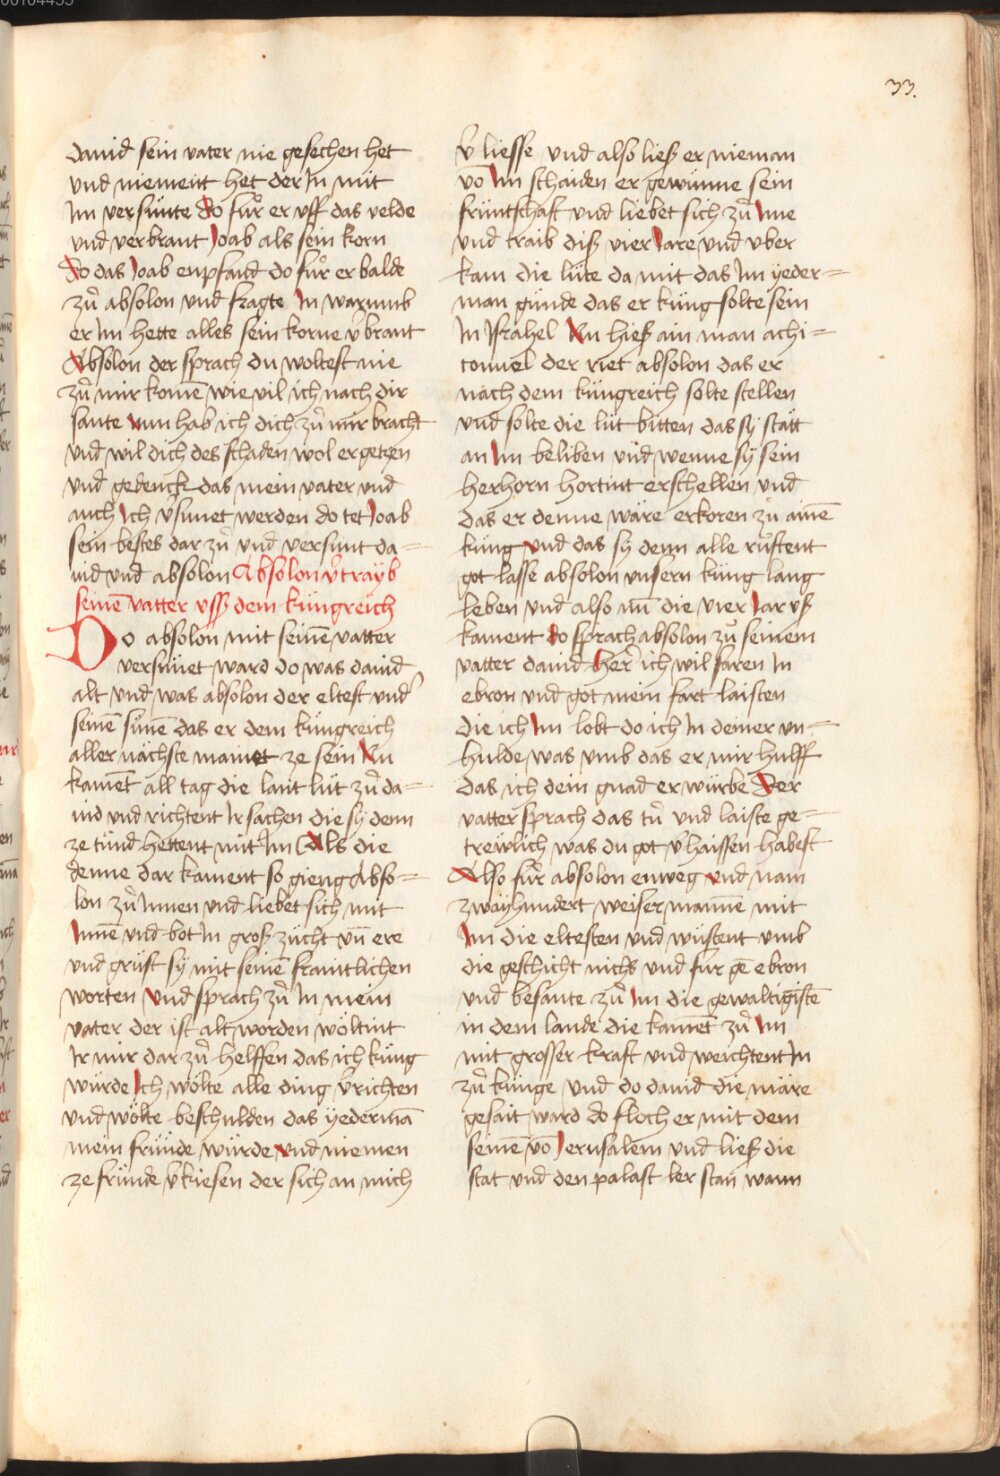 00104455
33.
dauid sein vater nie gesechen het
vnd niement het der In mit
Im versünte Do fuͦr er vff das velde
vnd verbrant Joab als sein korn
Do das Joab enpfand do fuͦr er balde
zuͦ absolon vnd fragte In warumb
er Im hette alles sein korne v̄brant
Absolon der sprach du woltest nie
zuͦ mir komē wie vil ich nach dir
sante vnn hab ich dich zuͦ mir bracht
vnd wil dich des schaden wol ergetzen
vnd gedenck das mein vater vnd
auch Ich v̄sunet werden do tet Joab
sein bestes dar zuͦ vnd versunt da=
uid vnd absolon Absolon v̄trayb
seinē vatter vsß dem küngreich
Do absolon mit seinē vatter
versünet ward do was dauid
alt vnd was absolon der eltest vnd
seinē sünē das er dem küngreich
aller nächste mainet ze sein Nu
kamēt all tag die lant lüt zuͦ da=
uid vnd richtent Ir sachen die sy denn
ze tünd hettent mit Im Als die
denne dar kament so gieng Abso=
lon zuͦ Innen vnd liebet sich mit
Innē vnd bot In groß zücht vn̄ ere
vnd gruͤst sy mit seinē frāintlichen
worten Vnd sprach zuͦ In mein
vater der ist alt worden wöltint
Ir mir dar zuͦ helffen das ich küng
würde Ich wölte alle ding v̄richten
vnd wölte beschulden das yedermā
mein fründe würde vnd niemen
ze fründe v̄kiesen der sich an mich
v̄liesse vnd also ließ er nieman
vō Im schaiden er gewünne sein
früntschaft vnd liebet sich zuͦ Ime
vnd traib diß vier Jare vnd vber
kam die lüte da mit das Im yeder=
man günde das er küng solte sein
In Israhel Nu hieß ain man achi=
tomel der riet absolon das er
nach dem küngreich solte stellen
vnd solte die lüt bitten das sy stätt
an Im beliben vnd wenne sy sein
herhorn hortint erschellen vnd
das er denne wäre erkoren zuͦ ainē
küng vnd das sy denn alle ruͤftent
got lasse absolon vnsern küng lang
leben vnd also nu die vier Jar vß
kament do sprach absolon zuͦ seinem
vatter dauid her ich wil faren In
ebron vnd got mein fart laisten
die ich Im lobt do ich In deiner vn=
hulde was vmb das er mir hulff
das ich dein gnad erwürbe Der
vatter sprach das tuͦ vnd laiste ge=
trewlich was du got v̄haissen habest
Also fuͦr absolon enweg vnd nam
zwayhundert weiser mannē mit
Im die eltesten vnd wustent vmb
die geschicht nichs vnd fur gē ebron
vnd besante zuͦ Im die gewaltigistē
in dem lande die kamēt zuͦ Im
mit grosser kraft vnd weichtent In
zuͦ künge vnd do dauid die märe
gesait ward do floch er mit dem
seinē vō Jerusalem vnd ließ die
stat vnd den palast ler stan wann